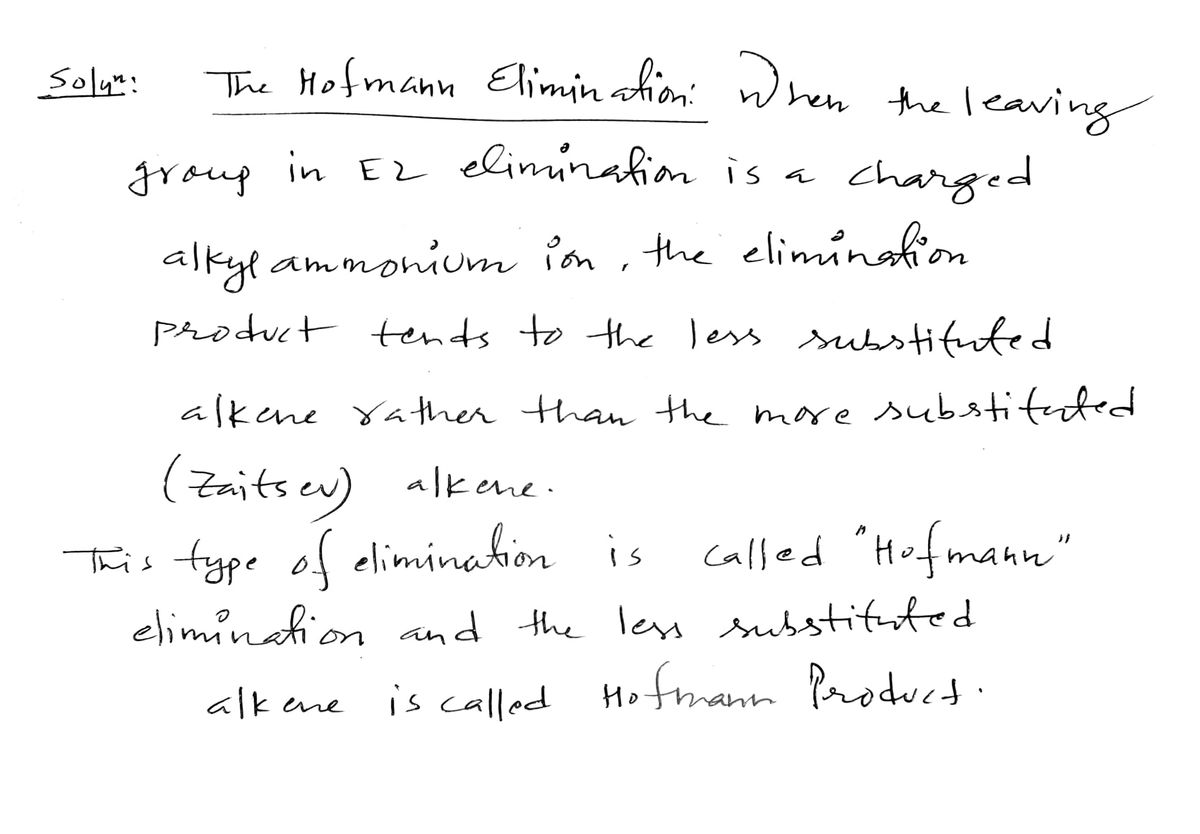 Solyⁿ: The Hofmann Elimination: When the leaving
group in E2 elimination is a charged
alkyl ammonium ion, the elimination
product tends to the less substituted
alkene rather than the more substituted
(Zaitsev) alkene.
This type of elimination is called "Hofmann"
elimination and the less substituted
alkene is called Hofmann Product.